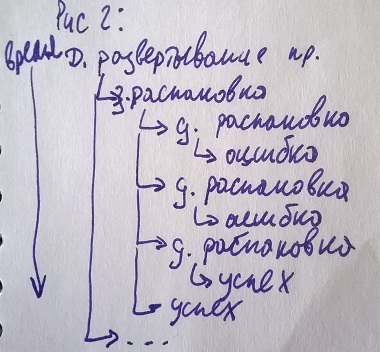 Рис 2:
время D. развертывание пр.
з. распановка
д. распановка
ошибка
д. распановка
ошибка
д. распановка
успех
успех
...